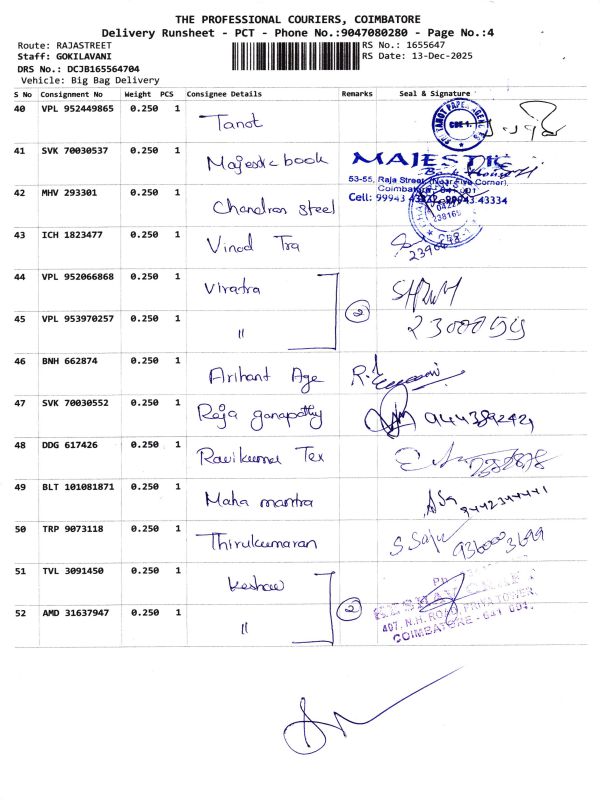 THE PROFESSIONAL COURIERS, COIMBATORE
Delivery Runsheet - PCT - Phone No.:9047080280 - Page No.:4
Route: RAJASTREET RS No.: 1655647
Staff: GOKILAVANI RS Date: 13-Dec-2025
DRS No.: DCJB165564704
Vehicle: Big Bag Delivery
S No Consignment No Weight PCS Consignee Details Remarks Seal & Signature
40 VPL 952449865 0.250 1 Tanot
41 SVK 70030537 0.250 1 Majestic book MAJESTIC
53-55, Raja Street, (Near Five Corner),
Coimbatore - 641 001.
42 MHV 293301 0.250 1 Chandran steel Cell: 99943 43334
43 ICH 1823477 0.250 1 Vinod Tra
44 VPL 952066868 0.250 1 Viratra
2
45 VPL 953970257 0.250 1 "
46 BNH 662874 0.250 1 Arihant Age
47 SVK 70030552 0.250 1 Raja ganapathy
48 DDG 617426 0.250 1 Ravikumar Tex
49 BLT 101081871 0.250 1 Maha mantra 9442344441
50 TRP 9073118 0.250 1 Thirukumaran
51 TVL 3091450 0.250 1 Keshav
2
52 AMD 31637947 0.250 1 "
497, N.H. ROAD, PRIYA TOWER,
COIMBATORE - 641 001.